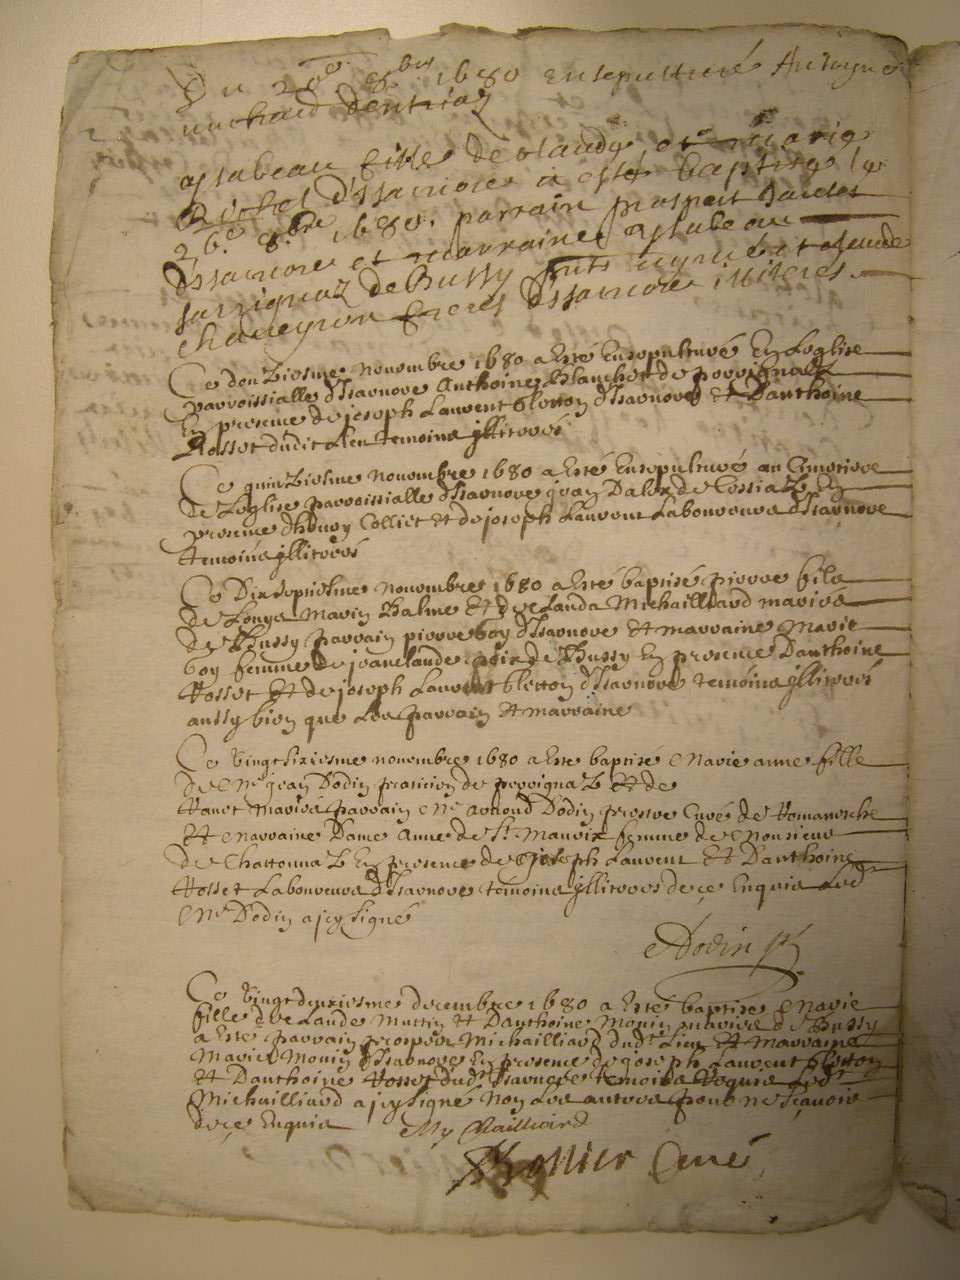 Du 20e 8bre 1680 ensepulturé Antoyne
michaud dentriaz
aysabeau fille de claudy et marie
Richel d'Issarnore a esté baptisee le
26e 8bre 1680. parrain prospert
dIssarnore et marraine aysabeau
de Bussy puts et claude
chaneyron freres dIssarnore illiteres.
Ce douziesme novembre 1680 a esté Ensepulturé En Leglise
parroissialle d'Isarnore Anthoine Blanchet de perrignaz
En presence de joseph Laurent Cletton d'Isarnore Et D'anthoine
Rosset dudit Lieu temoins jllitterés
Ce quinziesme novembre 1680 a Esté Ensepulturé au Cimetiere
de Leglise parroissialle d'Isarnore jean Dalex de Cessiaz En
presence d'henry Colliet Et de joseph Laurent Laboureurs d'Isarnore
temoins jllitterés
Ce Dixseptiesme novembre 1680 a Esté baptisé pierre fils
de Louys Marin Balme Et de Clauda Michailliard mariés
de Bussy parrain pierre boy d'Isarnore Et marraine Marie
boy femme de jeanclaude poix de Bussy En presence D'anthoine
Rosset Et de joseph Laurent Cletton d'Isarnore temoins jllitterés
aussy bien que Les parrain Et marraine
Ce vingt sixiesme novembre 1680 a Esté baptisé Marie anne fille
de Me jean Dodin praticien de perrignaz Et de
Ranet mariés parrain Me Arnoud Dodin prestre Curé de Romanesche
Et Marraine Dame Anne de St Maurix femme de Monsieur
de Chattonnaz En presence de joseph Laurent Et D'anthoine
Rosset Laboureurs d'Isarnore temoins jllitterés de ce Enquis Led
Me Dodin a jcy signé
Dodin
Ce vingt deuxiesme decembre 1680 a Esté baptisé Marie
fille de Claude Muttin Et D'anthoine Monin mariés de Bussy
a Esté parrain prospere Michailliard dudt Lieu Et Marraine
Marie Monin d'Isarnore En presence de joseph Laurent Cletton
Et D'anthoine Rosset dudt Isarnore temoins Requis Ledt
Michailliard a jcy signé Non Les autres pour ne sçavoir
de ce Enquis My Chailliard
Rossier Curé